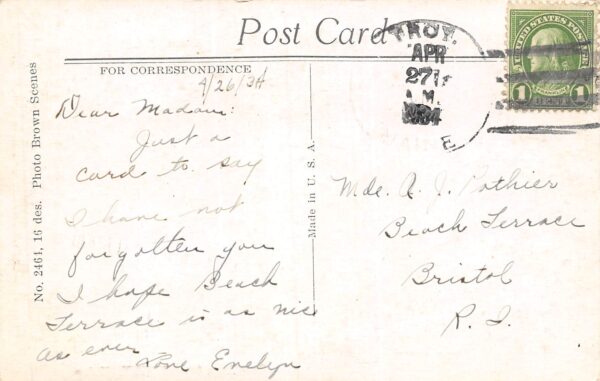 Post Card
FOR CORRESPONDENCE
4/26/34
Dear Madam:
Just a
card to say
I have not
forgotten you
I hope Beach
Terrace is as nice
as ever
Love Evelyn
No. 2464, 16 des. Photo Brown Scenes
Made in U. S. A.
TROY.
APR
27
A.M.
1934
UNITED STATES POSTAGE
FRANKLIN
1 CENT 1
Mde. A. J. Pothier
Beach Terrace
Bristol
R. I.